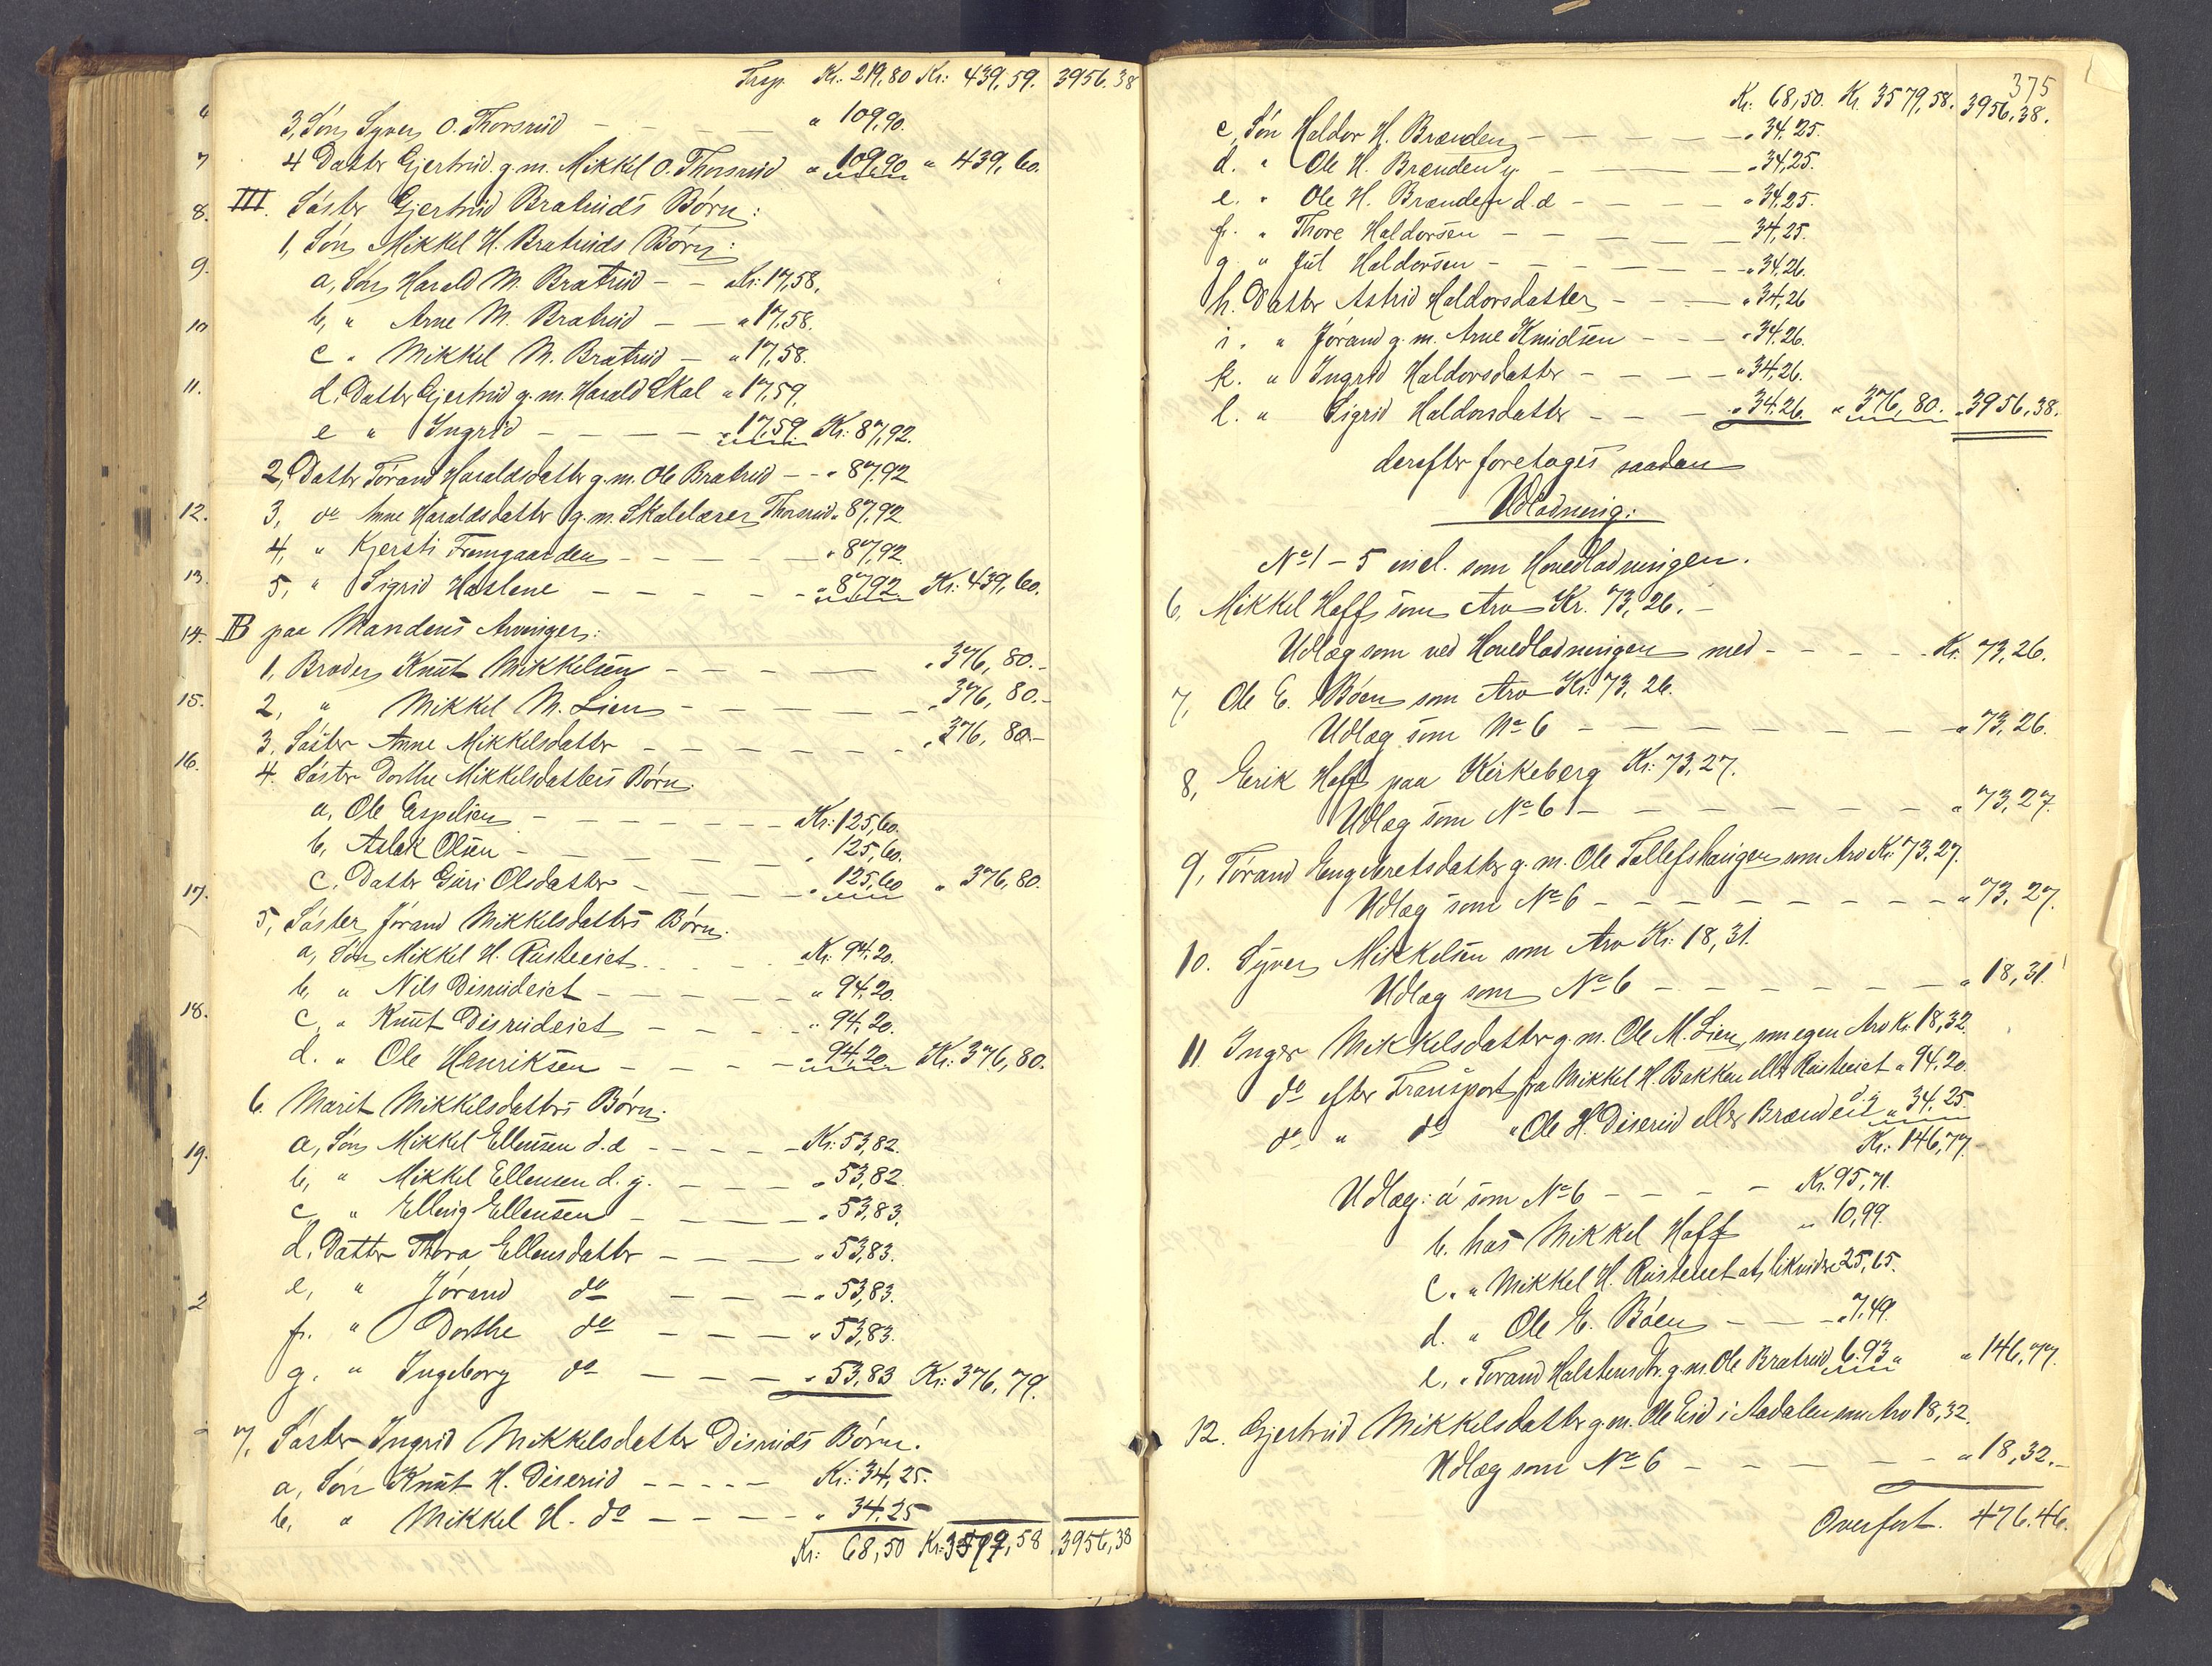 Trsp. Kr. 219,80 Kr: 439,59. 3956.38
3, Søn Syver O. Thorsrud - - - " 109,90.
4 Datter Gjertrud g.m. Mikkel O. Thorsrud " 109,90 " 439,60.
III. Søster Gjertrud Bratruds Børn:
1, Søn Mikkel H. Bratruds Børn:
a, Søn Harald M. Bratrud - - Kr: 17,58.
b, " Arne M. Bratrud - - " 17,58.
c " Mikkel M. Bratrud - " 17,58.
d. Datter Gjertrud g.m. Harald Skal " 17,59.
e " Ingrid - - - - " 17,59. Kr: 87,92.
2, Datter Jørand Haraldsdatter g.m. Ole Bratrud - - " 87,92
3, do Anne Haraldsdatter g.m. Skolelærer Thorsrud " 87,92
4, " Kjersti Framgaarden - - - - " 87,92
5, " Sigrid Haslene - - - - " 87,92 Kr: 439,60.
B paa Mandens Arvinger:
1, Broder Knut Mikkelsen - - - - " 376,80.-
2, " Mikkel M. Lien - - - - " 376,80.-
3. Søster Anne Mikkelsdatter - - - - " 376,80-
4. Søster Dorthe Mikkelsdatters Børn.
a, Ole Espelien - - - - - Kr: 125,60.
b, Aslak Olsen - - - - " 125,60.
c. Datter Guri Olsdatter - - - " 125,60 " 376,80.
5, Søster Jørand Mikkelsdatters Børn.
a, Søn Mikkel H. Rusteeiet - - - Kr. 94,20.
b, " Nils Disrudeiet - - - - " 94,20.
c, " Knut Disrudeiet - - - " 94,20.
d. " Ole Henriksen - - - - " 94,20 Kr: 376,80.
6. Marit Mikkelsdatters Børn.
a, Søn Mikkel Ellensen d.æ - - - - Kr: 53,82.
b, " Mikkel Ellensen d. y. - - - " 53,82.
c " Elling Ellensen - - - - " 53,83.
d. Datter Thora Ellensdatter - - - " 53,83.
e, " Jørand do - - - " 53,83.
f. " Dorthe do - - - " 53,83.
g. " Ingeborg do - - - " 53,83 Kr: 376,79.
7, Søster Ingrid Mikkelsdatter Disruds Børn.
a, Søn Knut H. Diserud - - - - Kr: 34,25.
b, " Mikkel H. do - - - - " 34,25
Kr: 68,50 Kr: 3579,58 3956,38
6
7
8.
9.
10
11.
12.
13.
14.
15.
16.
17.
18.
19.
2
375
Kr: 68,50. Kr. 3579,58. 3956,38.
c, Søn Haldor H. Brænden - - - - " 34,25.
d. " Ole H. Brænden y. - - - " 34,25.
e. " Ole H. Brænden d.æ - - - - " 34,25.
f. " Thore Haldorsen - - - - 34,25.
g " Jul Haldorsen - - - - " 34,26.
h. Datter Astrid Haldorsdatter - - - " 34,26
i. " Jørand g.m. Arne Knudsen - - - " 34,26.
k. " Ingrid Haldorsdatter - - - - " 34,26.
l. " Sigrid Haldorsdatter - - - " 34,26 " 376,80. " 3956,38.
derefter foretoges saadan
Udlodning:
No 1 - 5 incl. som Hovedlodningen.
6, Mikkel Hoff som Arv Kr. 73,26. -
Udlæg som ved Hovedlodningen med - - - - Kr. 73,26.
7, Ole E. Bøen som Arv Kr: 73,26.
Udlæg som No 6 - - - - - - " 73,26.
8, Erik Hoff paa Kirkeberg Kr: 73,27.
Udlæg som No 6 - - - - - - " 73,27.
9, Jørand Engebretsdatter g.m. Ole Tollefshaugen som Arv Kr: 73,27.
Udlæg som No 6 - - - - - - " 73,27.
10. Syver Mikkelsen som Arv Kr: 18,31.
Udlæg som No 6 - - - - - " 18,31
11 Inger Mikkelsdatter g.m. Ole M. Lien, som egen Arv Kr. 18,32.
do efter Transport fra Mikkel H. Bakken eller Rusteeiet " 94,20.
do " do " Ole H. Diserud eller Brænden d.y " 34,25
Kr: 146,77.
Udlæg: a som No 6 - - - - Kr. 95,71.
b. hos Mikkel Hoff " 10,99.
c. " Mikkel H. Rusteeiet at likvidere 25,65.
d. " Ole E. Bøen - - - " 7,49.
e, " Jørand Halstensdtr. g.m. Ole Bratrud 6,93 " " 146,77.
12. Gjertrud Mikkelsdatter g.m. Ole Eid i Aadalen som Arv 18,32.
Udlæg som No 6 - - - - - " 18,32.-
Overført. 476.46.